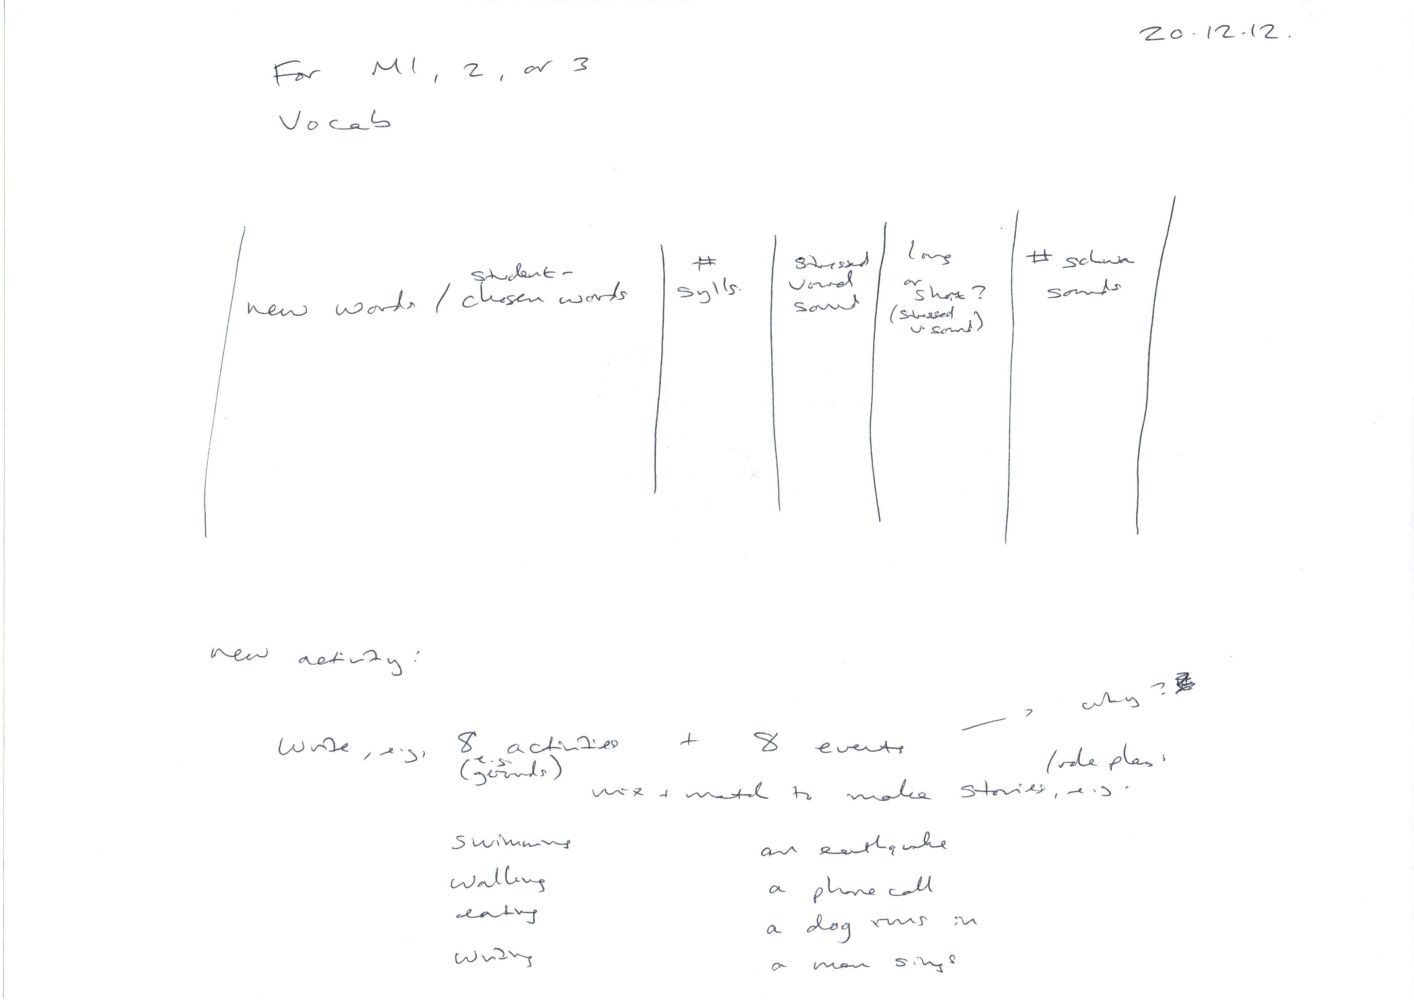 20.12.12.
For M1, 2, or 3
Vocab
new words / student-chosen words
#
sylls.
stressed
vowel
sound
long
or
short?
(stressed
v. sound)
# schwa
sounds
new activity:
why?
Write, e.g. 8 activities + 8 events
(e.g. gerunds)
/role plays.
mix + match to make stories, e.g.
swimming an earthquake
walking a phone call
eating a dog runs in
writing a man sings